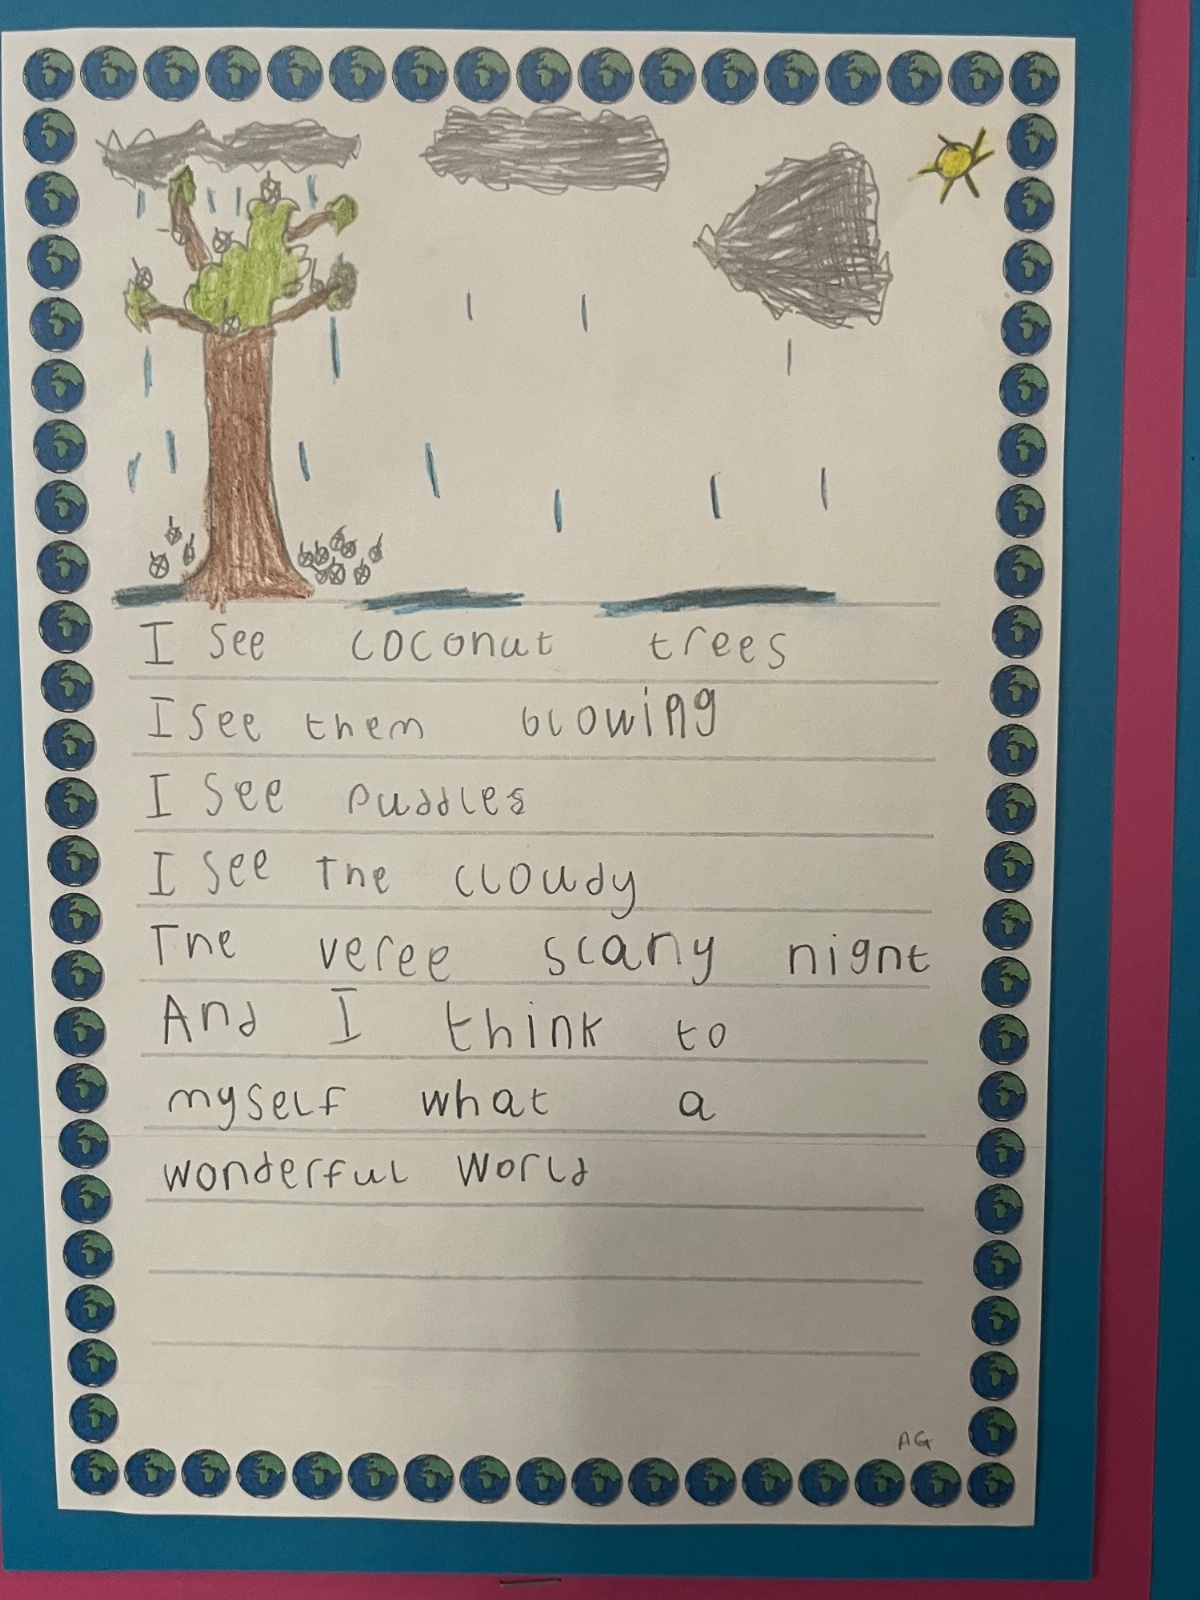 I see coconut trees
I see them blowing
I see puddles
I see the cloudy
The veree scary night
And I think to
myself what a
wonderful world
AG